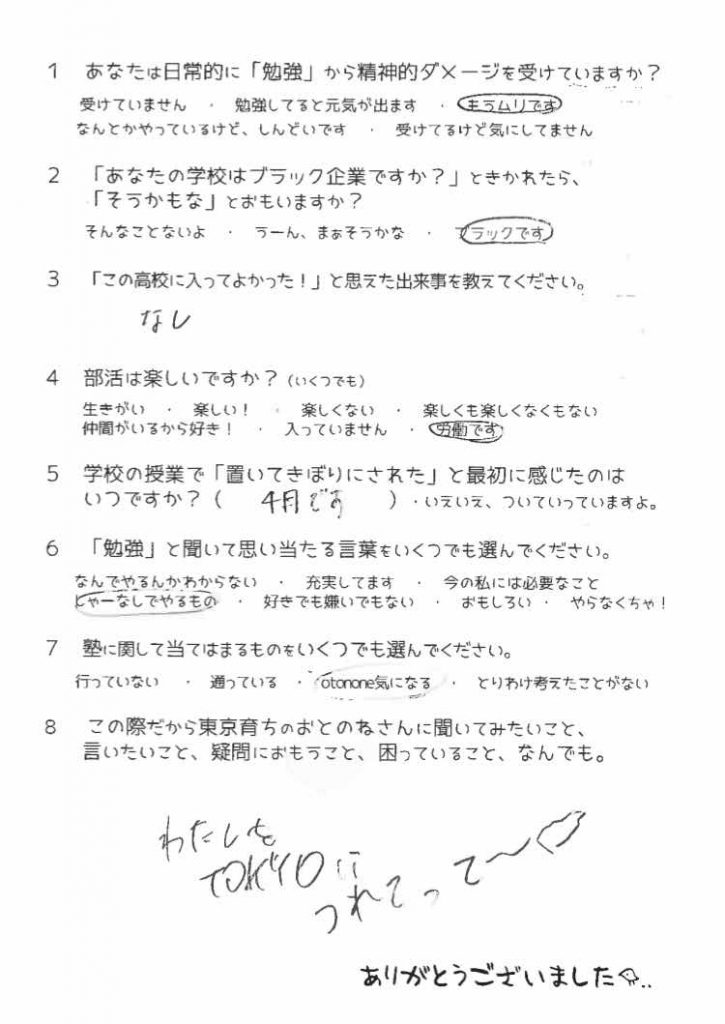 1 あなたは日常的に「勉強」から精神的ダメージを受けていますか？
受けていません ・ 勉強してると元気が出ます ・ もうムリです
なんとかやっているけど、しんどいです ・ 受けてるけど気にしてません
2 「あなたの学校はブラック企業ですか？」ときかれたら、
「そうかもな」とおもいますか？
そんなことないよ ・ うーん、まぁそうかな ・ ブラックです
3 「この高校に入ってよかった！」と思えた出来事を教えてください。
なし
4 部活は楽しいですか？（いくつでも）
生きがい ・ 楽しい！ ・ 楽しくない ・ 楽しくも楽しくなくもない
仲間がいるから好き！ ・ 入っていません ・ 労働です
5 学校の授業で「置いてきぼりにされた」と最初に感じたのは
いつですか？（ 4月です ）・いえいえ、ついていっていますよ。
6 「勉強」と聞いて思い当たる言葉をいくつでも選んでください。
なんでやるんかわからない ・ 充実してます ・ 今の私には必要なこと
しゃーなしでやるもの ・ 好きでも嫌いでもない ・ おもしろい ・ やらなくちゃ！
7 塾に関して当てはまるものをいくつでも選んでください。
行っていない ・ 通っている ・ otonone気になる ・ とりわけ考えたことがない
8 この際だから東京育ちのおとのねさんに聞いてみたいこと、
言いたいこと、疑問におもうこと、困っていること、なんでも。
わたしを
TOKYOに
つれてって〜
ありがとうございました..